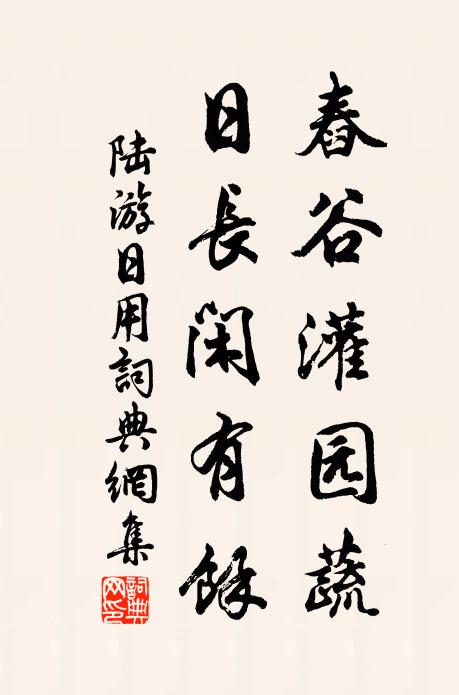 舂谷灌园蔬
日長閑有餘
陸游日用詞典網集
詞典网印